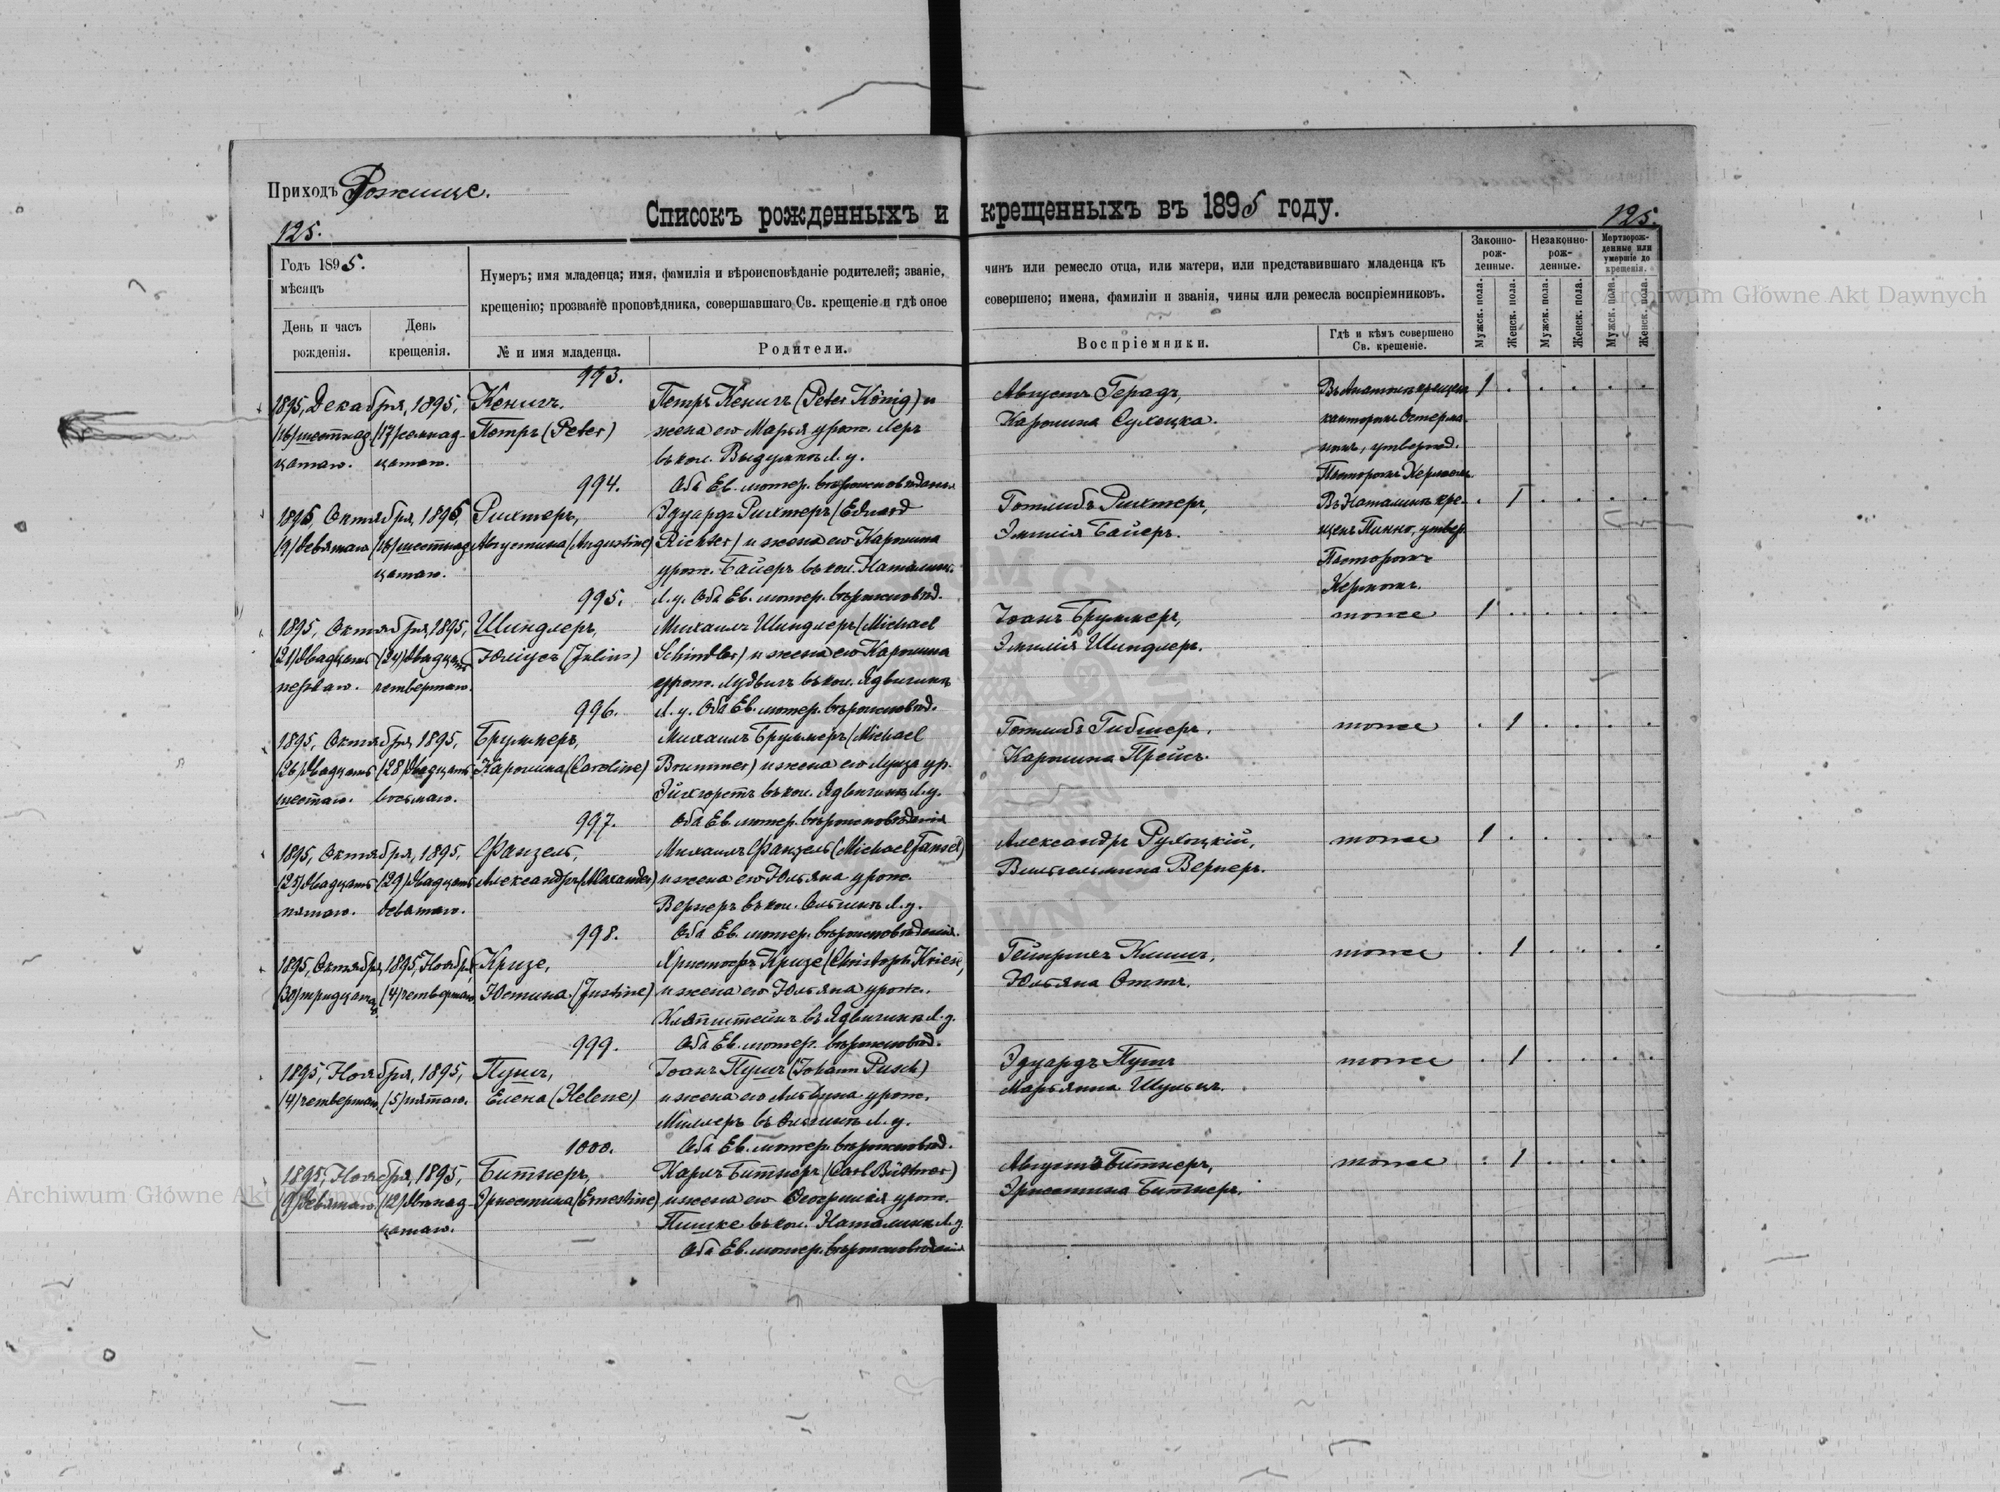 Приходъ Рожище.
Списокъ рожденныхъ и крещенныхъ въ 1895 году.
125.
125.
Годъ 1895.
мѣсяцъ
День и часъ
рожденія.
День
крещенія.
Нумеръ; имя младенца; имя, фамилія и вѣроисповѣданіе родителей; званіе, чинъ или ремесло отца, или матери, или представившаго младенца къ
крещенію; прозваніе проповѣдника, совершавшаго Св. крещеніе и гдѣ оное совершено; имена, фамиліи и званія, чины или ремесла воспріемниковъ.
№ и имя младенца.
Родители.
Воспріемники.
Гдѣ и кѣмъ совершено
Св. крещеніе.
Законно-
рож-
денные.
Незаконно-
рож-
денные.
Мертворож-
денные или
умершіе до
крещенія.
Мужск. пола.
Женск. пола.
Мужск. пола.
Женск. пола.
Мужск. пола.
Женск. пола.
993.
1895, Декабря, 1895, Кенигъ, Петръ Кенигъ (Peter König) и Августъ Герадъ, 1
(16) шестнад (17) семнад Петръ (Peter) жена его Марья урож. Каролина
цатаго. цатаго. въ кол. Выдумка Л. у.
994. Оба Ев. лютер. вѣроисповѣданія
1895, Октября, 1895, Рихтеръ, Эдуардъ Рихтеръ (Eduard Готлибъ Рихтеръ, 1
(9) девятаго (16) шестнад Августина (Augustine) Richter) и жена его Каролина Эмилія Байеръ.
цатаго. урож. Байеръ въ кол. Пасторомъ
995. Л. у. Оба Ев. лютер. вѣроисповѣд.
1895, Октября, 1895, Шиндлеръ, Михаилъ Шиндлеръ (Michael Іоанъ Бруммеръ, тоже 1
(21) двадцать (24) двадцать Юліусъ (Julius) Schindler) и жена его Каролина Эмилія Шиндлеръ.
перваго. четвертаго. урож. Лудвигъ въ кол. Ядвигинъ
996. Л. у. Оба Ев. лютер. вѣроисповѣд.
1895, Октября, 1895, Бруммеръ, Михаилъ Бруммеръ (Michael Готлибъ тоже 1
(26) двадцать (28) двадцать Каролина (Caroline) Brummer) и жена его Луиза ур. Каролина Прейсъ.
шестаго. восьмаго. въ кол. Ядвигинъ Л. у.
997. Оба Ев. лютер. вѣроисповѣданія
1895, Октября, 1895, Фанзель, Михаилъ Фанзель (Michael Fansel) Александръ тоже 1
(25) двадцать (29) двадцать Александръ (Alexander) и жена его Юльяна урож. Вильгельмина Вернеръ.
пятаго. девятаго. Вернеръ въ кол. Л. у.
998. Оба Ев. лютер. вѣроисповѣданія.
1895, Октября, 1895, Ноября, Кризе, Христофъ Кризе (Christoph Kriese, Гейнрихъ тоже 1
(30) тридцатаго (4) четвертаго Юстина (Justine) и жена его Юльяна урож. Юльяна Оттъ.
въ Ядвигинъ Л. у.
999. Оба Ев. лютер. вѣроисповѣд.
1895, Ноября, 1895, Пушъ, Іоанъ Пушъ (Johann Pusch) Эдуардъ Пушъ тоже 1
(4) четвертаго (5) пятаго. Елена (Helene) и жена его Альвина урож. Марьянна Шульцъ.
Миллеръ въ Л. у.
1000. Оба Ев. лютер. вѣроисповѣд.
1895, Ноября, 1895, Битнеръ, Карлъ Битнеръ (Carl Büttner) Августъ Битнеръ, тоже 1
(9) девятаго (12) двѣнад Эрнестина (Ernestine) и жена его урож. Эрнестина Битнеръ.
цатаго. въ кол. Л. у.
Оба Ев. лютер. вѣроисповѣданія
Archiwum Główne Akt Dawnych
Archiwum Główne Akt Dawnych